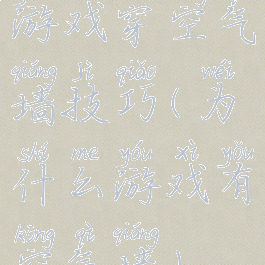 游戏穿空气
qiáng jì qiǎo wèi
墙技巧(为
shé me yóu xì yǒu
什么游戏有
kōng qì qiáng
空气墙)